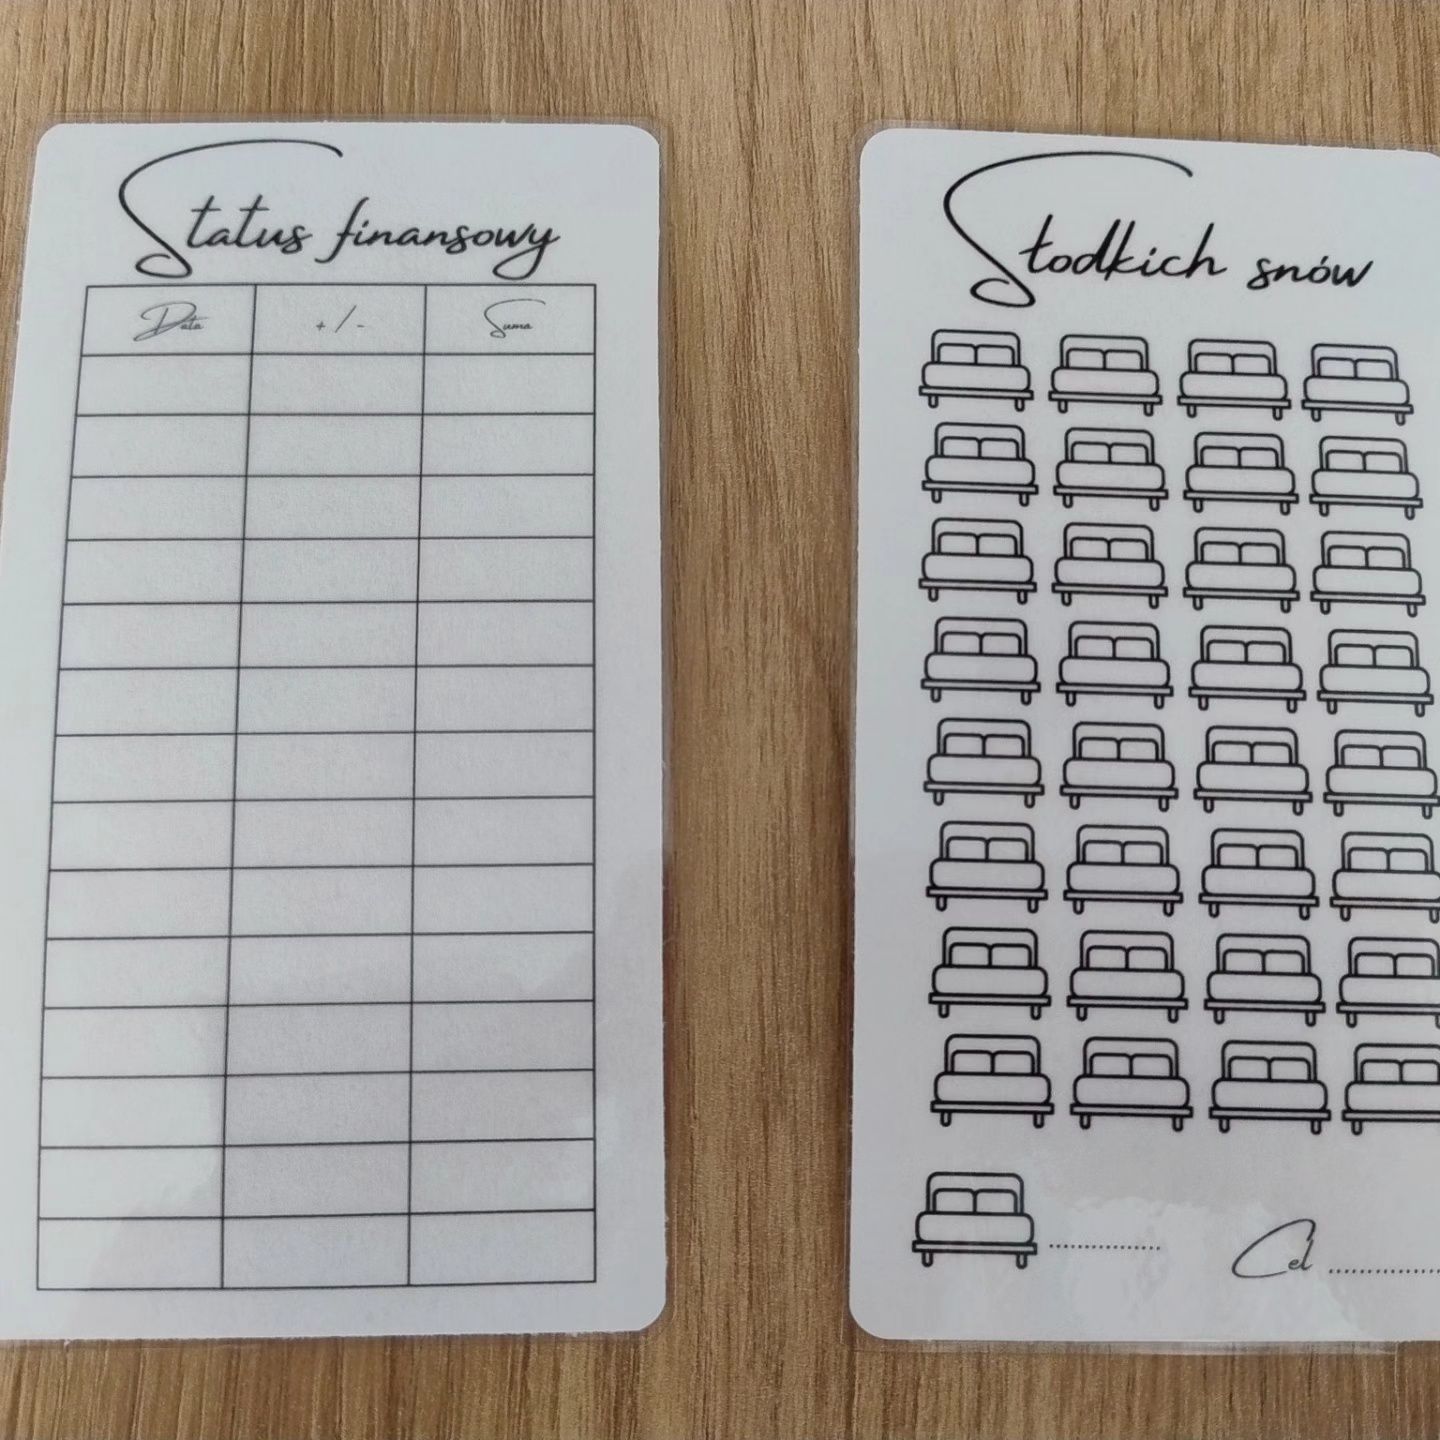 Status finansowy
Data +/- Suma
Słodkich snów
.................. Cel ..................